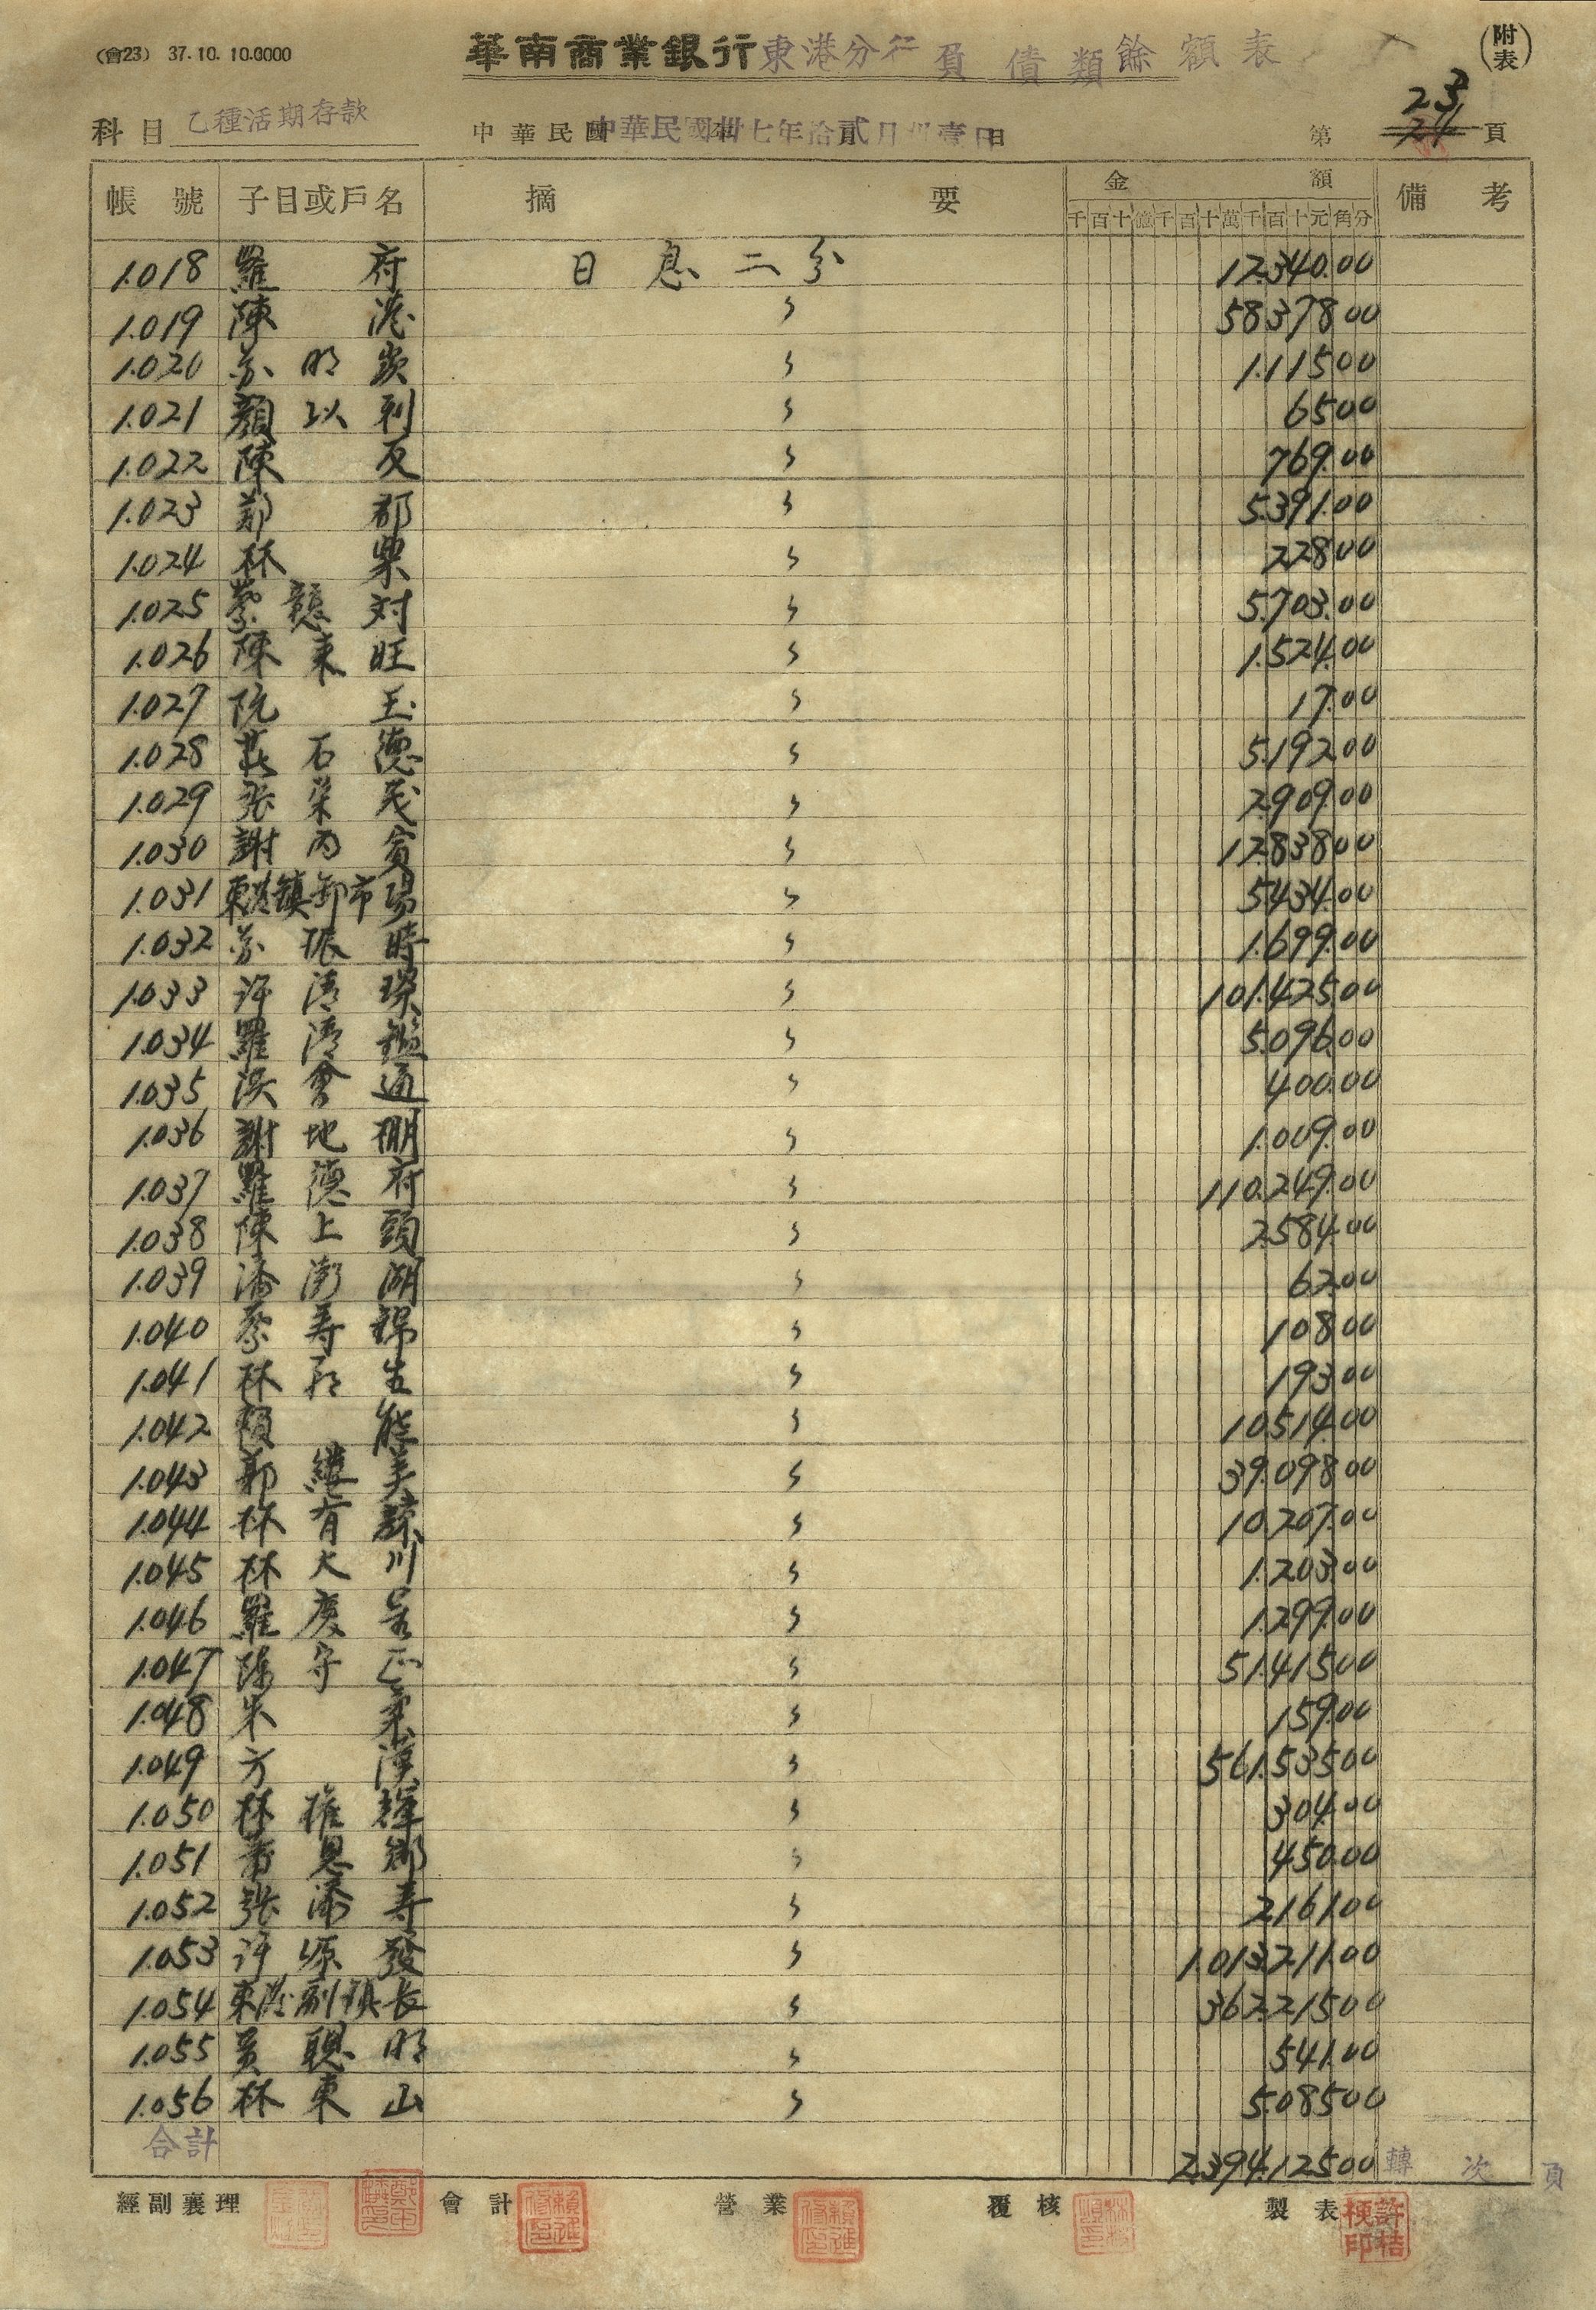 (會23) 37.10.10.0000
華南商業銀行東港分行負債類餘額表
(附表)
科目 乙種活期存款 中華民國 中華民國卅七年拾貳月卅壹日 第 23 頁
帳號 子目或戶名 摘要 金額 備考
千百十億千百十萬千百十元角分
1.018 羅府 日息二分 12.340.00
1.019 陳港 〃 58378.00
1.020 苏明崁 〃 1.115.00
1.021 顏以利 〃 65.00
1.022 陳反 〃 769.00
1.023 鄭郡 〃 5.391.00
1.024 林樂 〃 228.00
1.025 蔡龍対 〃 5.703.00
1.026 陳東旺 〃 1.524.00
1.027 阮玉 〃 17.00
1.028 莊石德 〃 5.192.00
1.029 張荣茂 〃 2.909.00
1.030 謝丙寅 〃 12.838.00
1.031 東港鎮卸市場 〃 5.434.00
1.032 苏振時 〃 1.699.00
1.033 許清琛 〃 101.425.00
1.034 羅清鑑 〃 5.096.00
1.035 洪會通 〃 400.00
1.036 謝地棚 〃 1.009.00
1.037 羅德府 〃 110.249.00
1.038 陳上頭 〃 2.584.00
1.039 潘澎湖 〃 62.00
1.040 蔡寿錦 〃 108.00
1.041 林生 〃 193.00
1.042 能 〃 10.514.00
1.043 郭美 〃 39.098.00
1.044 林有諒 〃 10.207.00
1.045 林大川 〃 1.203.00
1.046 羅慶 〃 1.299.00
1.047 陳守正 〃 51.415.00
1.048 朱 〃 159.00
1.049 方漢 〃 561.535.00
1.050 林権輝 〃 304.00
1.051 恩鄉 〃 450.00
1.052 張添寿 〃 2.161.00
1.053 許源發 〃 1.013.211.00
1.054 東港副鎮長 〃 362.215.00
1.055 黃聰明 〃 541.00
1.056 林東山 〃 5.085.00
合計 2.394.125.00 轉次頁
經副襄理 會計 營業 覆核 製表 許桔梗印